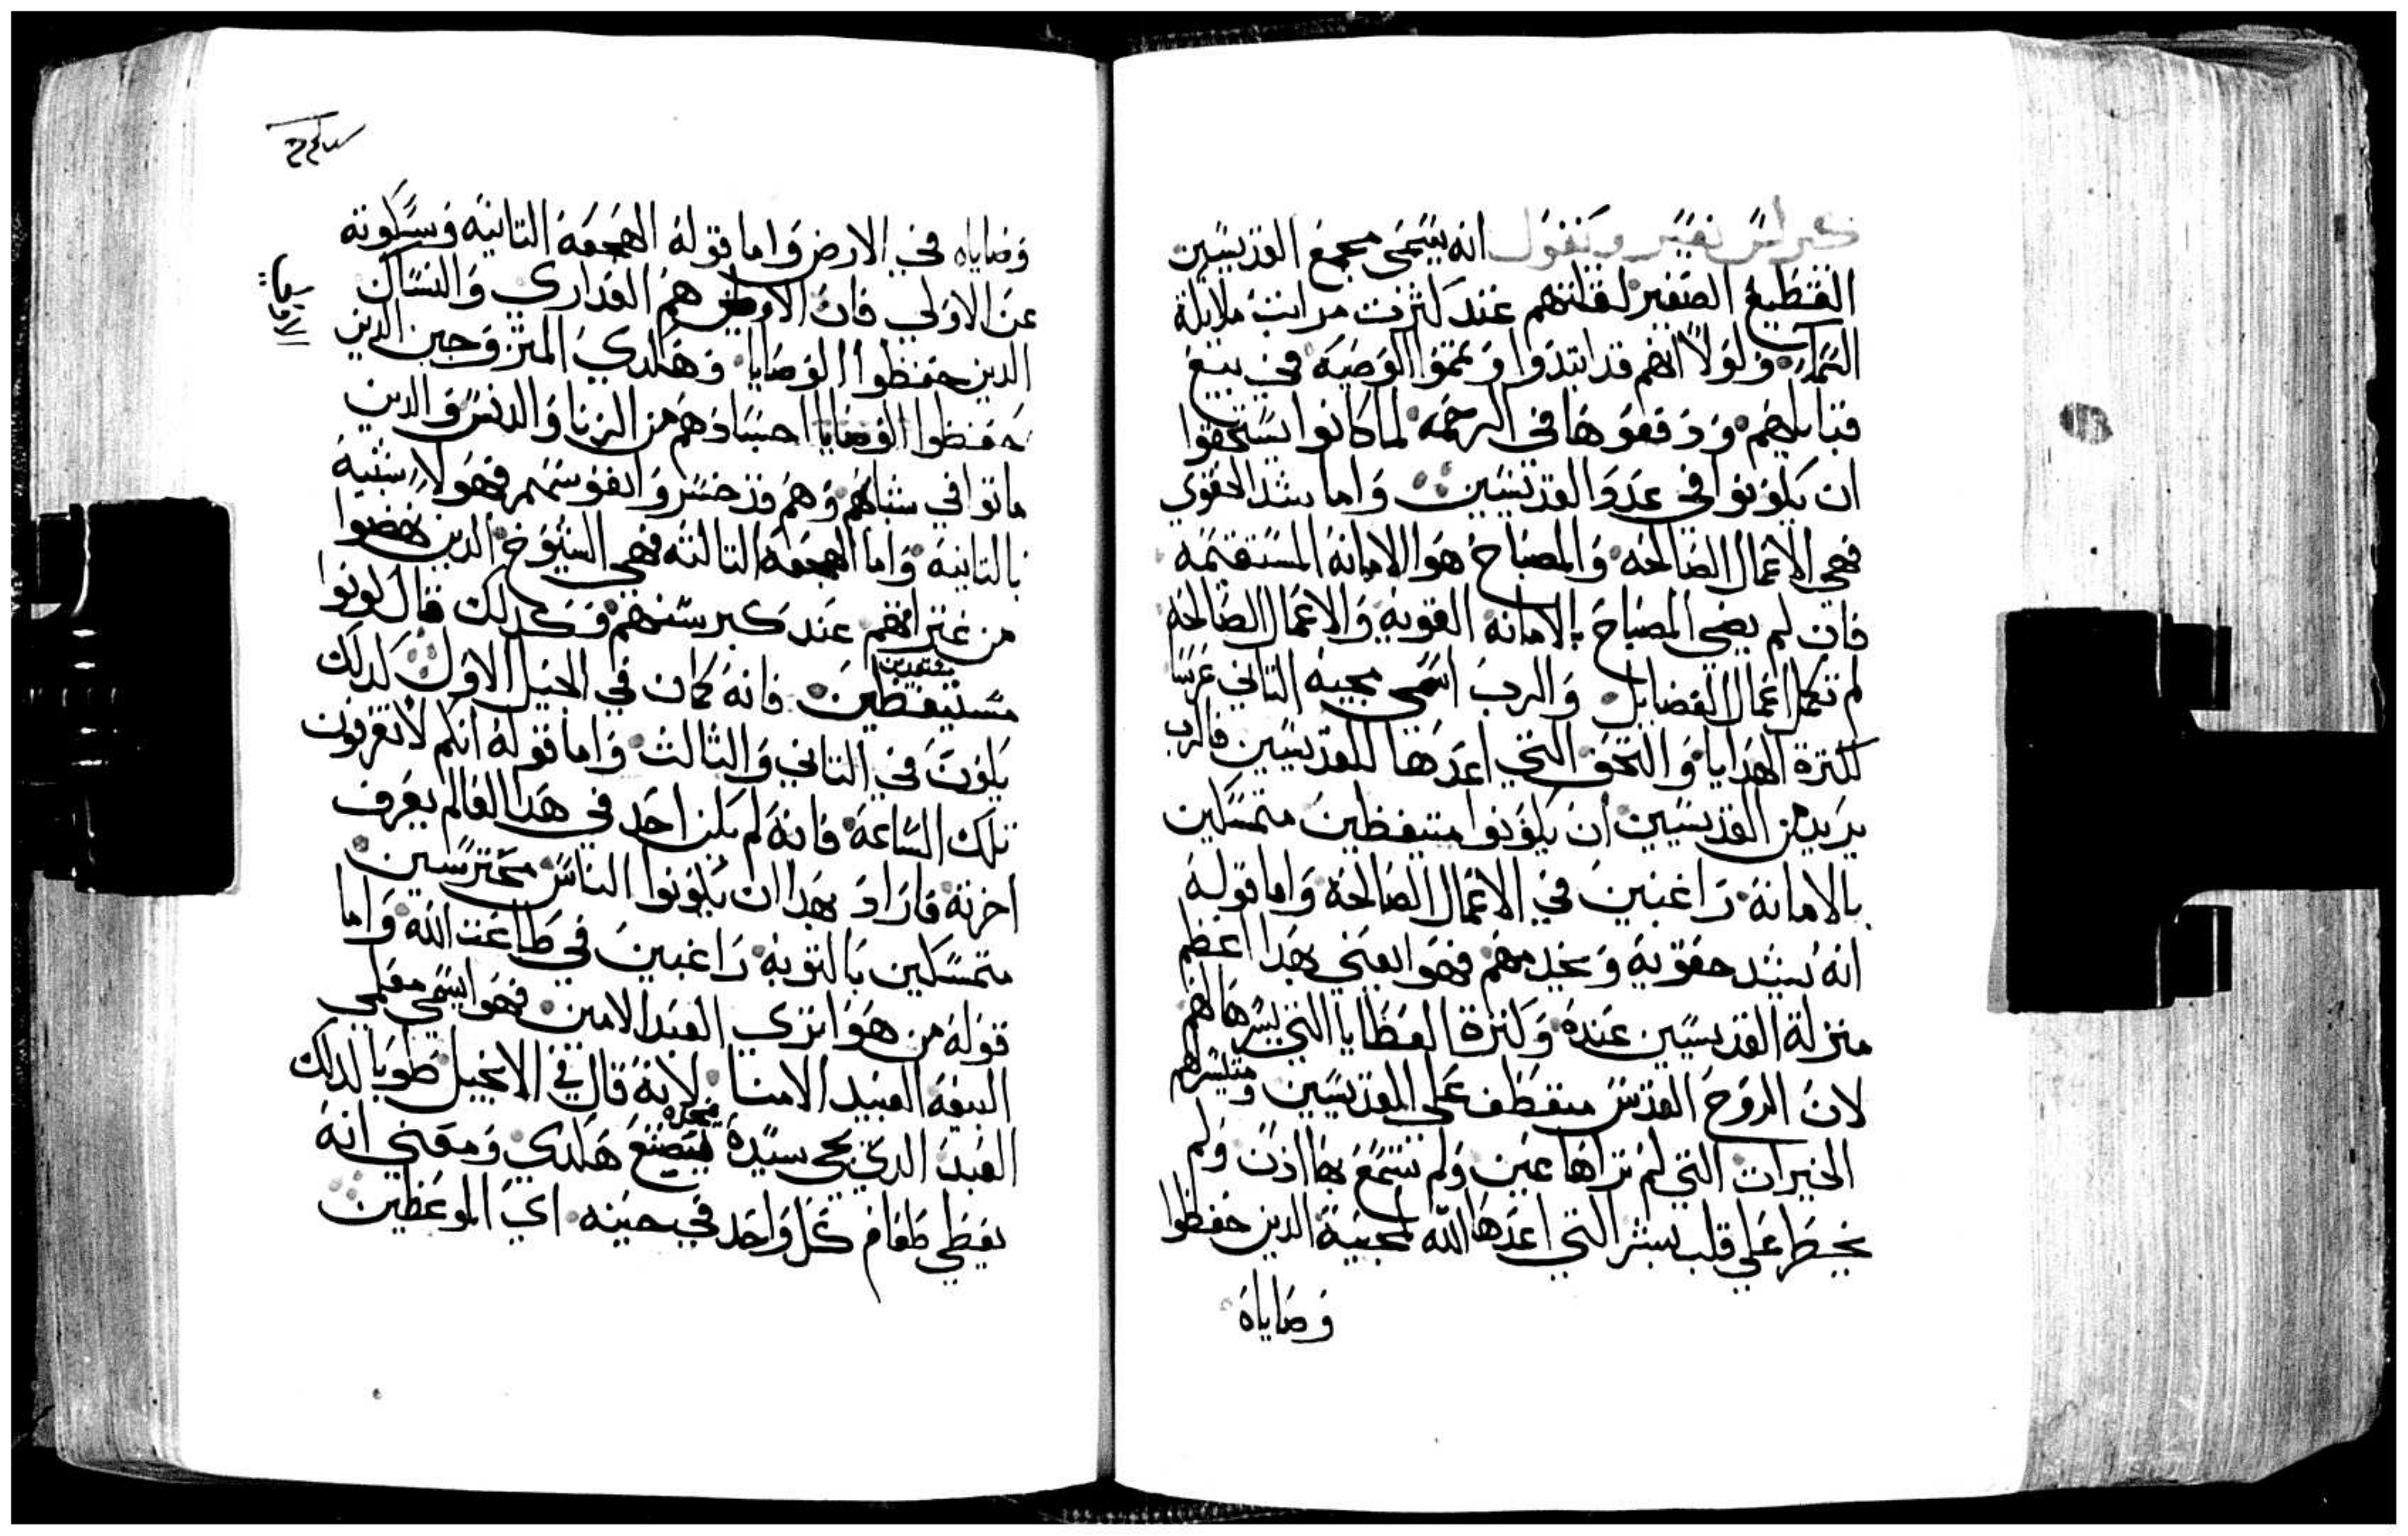 كيرلس يفسر ويقول انه يسمى مجمع القديسين
القطيع الصغير لقلتهم عند كثرت مراتب ملايكة
السما ولولا انهم قد ابتدوا وتمموا الوصية في بيع
قنايهم ودفعوها في الرحمه لما كانوا يستحقوا
ان يكونوا في عدد القديسين واما شد الحقوي
فهي الاعمال الصالحه والمصباح هو الامانة المستقيمه
فان لم يضي المصباح بالامانه القويه والاعمال الصالحه
لم تكمل اعمال الفضايل والرب اسمى مجيه التاني عرسا
لكثرة الهدايا والتحف التي اعدها للقديسين فالرب
يريد من القديسين ان يكونوا متيقظين متمسكين
بالامانة راغبين في الاعمال الصالحة واما قوله
انه يشد حقويه ويخدمهم فهو يعني بهدا اعظم
منزلة القديسين عنده وكترة العطايا التي يبشرها لهم
لان الروح القدس منعطف على القديسين
الخيرات التي لم تراها عين ولم تسمع بها ادن ولم
يخطر على قلب بشر التي اعدها الله لمحبيه الدين حفظوا
وصاياه
وصاياه في الارض واما قوله الهجعة التانيه وسكوته
عن الاولي فان الاولي هم العداري والنساك
الدين حفظوا الوصايا وهكدي المتزوجين الدين
حفظوا الوصايا اجسادهم من الزنا والدنس والدين
ماتوا في شبابهم وهم قد
بالتانية واما الهجعة التالته فهي الشيوخ الدين نهضوا
من غتراتهم عند كبر سنهم وكدلك قال كونوا
مستيقظين فانه كان في الجيل الاول لدلك
يكون في التاني والثالث واما قوله انكم لا تعرفون
تلك الساعة فانه لم يكن احد في هدا العالم يعرف
اخرته فاراد بهدا ان يكونوا الناس محترسين
متمسكين بالتوبه راغبين في طاعت الله واما
قوله من هو اتري العبد الامين فهو اسمى معلمي
البيعه العبيد الامنا لانه قال في الانجيل طوبا لدلك
العبد الدي يجي سيده فيجده يصنع هكدي ومعني انه
يعطي طعام كل واحد في حينه اي الموعظين